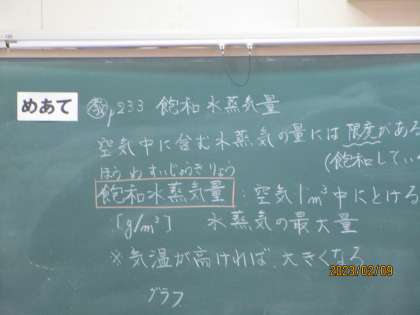 めあて
教p233 飽和水蒸気量
空気中に含む水蒸気の量には限度がある
(飽和してい
ほうわすいじょうきりょう
飽和水蒸気量:空気1m³中にとける
[g/m³] 水蒸気の最大量
※気温が高ければ、大きくなる
グラフ
2023/02/09